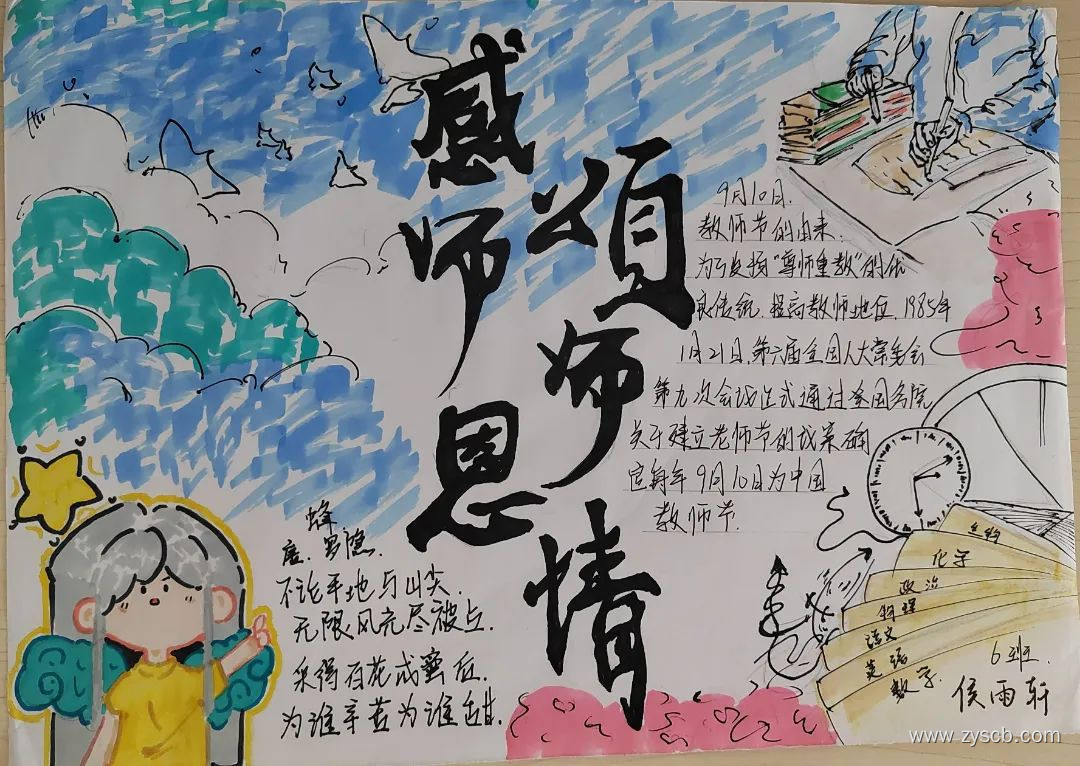 感师恩
颂师情
9月10日.
教师节的由来.
为了发扬“尊师重教”的优
良传统，提高教师地位，1985年
1月21日，第六届全国人大常委会
第九次会议正式通过全国务院
关于建立老师节的议案确
定每年9月10日为中国
教师节.
蜂
唐.罗隐.
不论平地与山尖.
无限风光尽被占.
采得百花成蜜后.
为谁辛苦为谁甜.
生物
化学
政治
物理
语文
英语
数学
6班.
侯雨轩
www.zyscb.com